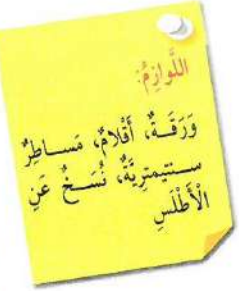 اللَّوَازِمُ:
وَرَقَةٌ، أَقْلَامٌ، مَسَاطِرُ
سَنْتِيمِتْرِيَّةٌ، نُسَخٌ عَنِ
الْأَطْلَسِ